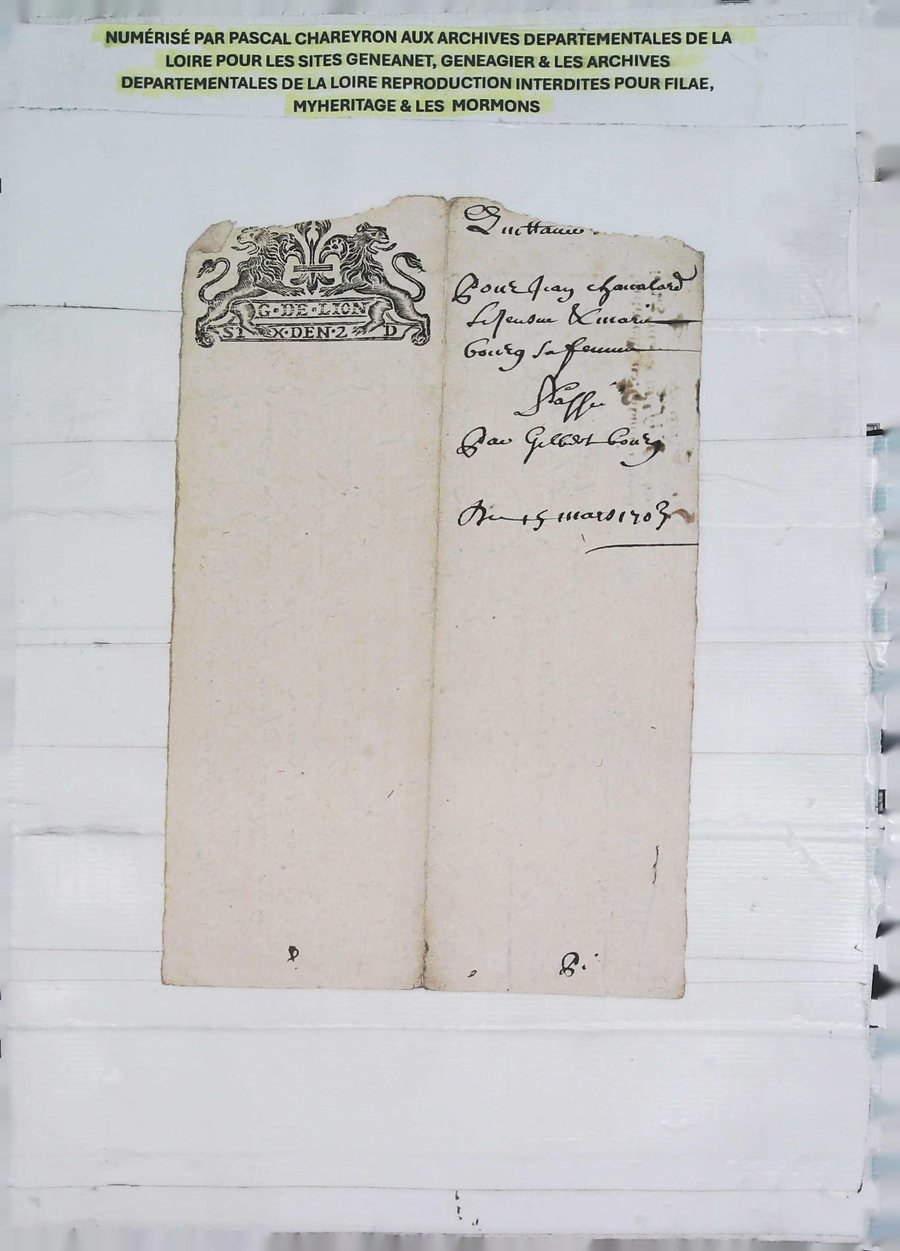 NUMÉRISÉ PAR PASCAL CHAREYRON AUX ARCHIVES DEPARTEMENTALES DE LA
LOIRE POUR LES SITES GENEANET, GENEAGIER & LES ARCHIVES
DEPARTEMENTALES DE LA LOIRE REPRODUCTION INTERDITES POUR FILAE,
MYHERITAGE & LES MORMONS
G·DE·LION
SIX·DEN·2 D
Quittance
Pour Jean chavalard
& marie
bourg sa femme
Passée
Par Gilbert bourg
Du 15 mars 1703